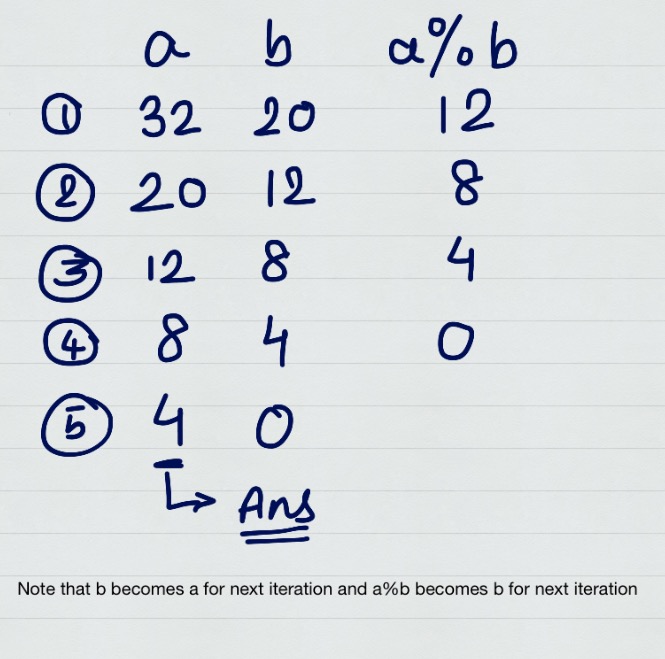 a b a%b
① 32 20 12
② 20 12 8
③ 12 8 4
④ 8 4 0
⑤ 4 0
Ans
Note that b becomes a for next iteration and a%b becomes b for next iteration